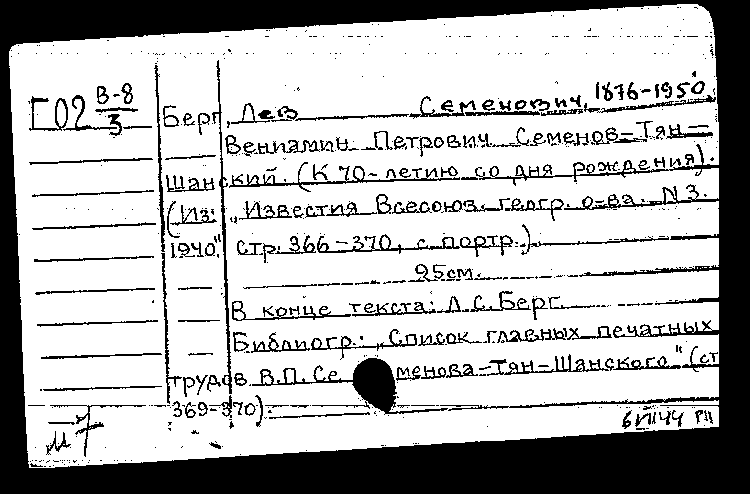 Г02 В-8/3
Берг, Лев Семенович, 1876-1950.
Вениамин Петрович Семенов-Тян-
Шанский. (К 70-летию со дня рождения).
(Из: „Известия Всесоюз. геогр. о-ва. N 3.
1940." стр. 366-370, с портр.).
25см.
В конце текста: Л.С. Берг.
Библиогр.: „Список главных печатных
трудов В.П. Семенова-Тян-Шанского" (ст
369-370).